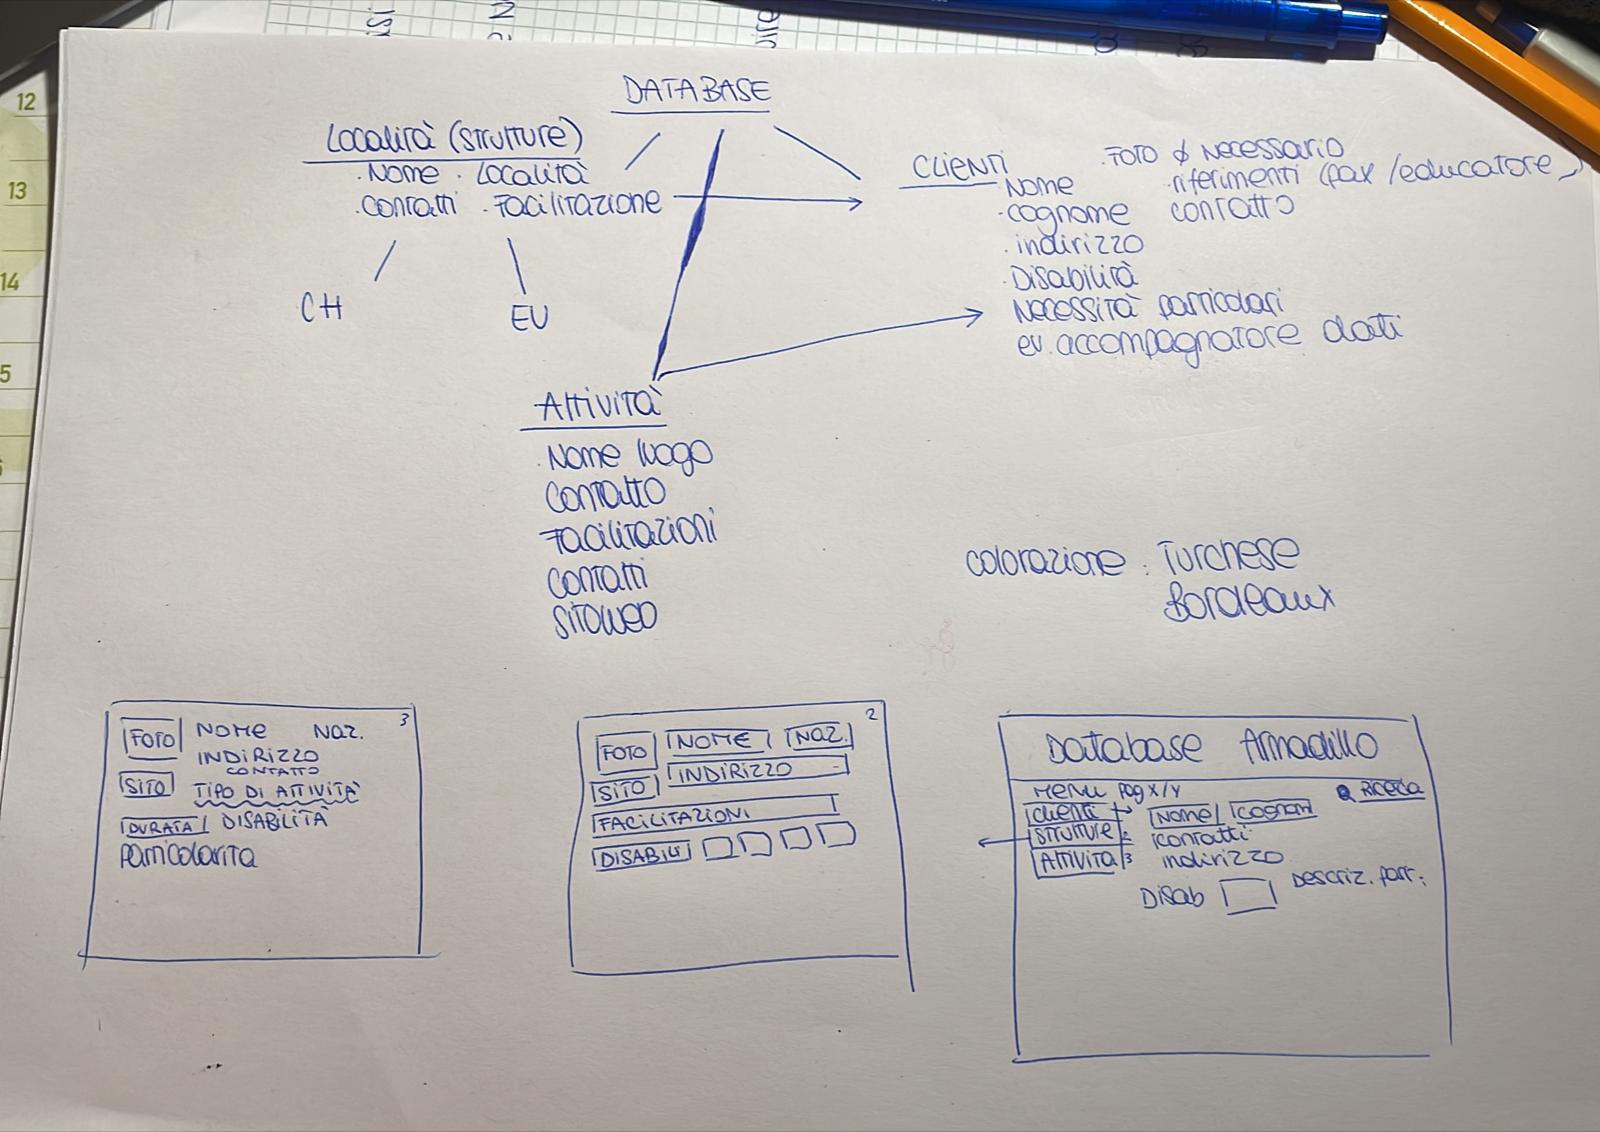 DATABASE
Località (strutture)
. Nome . Località
. contatti . Facilitazione
CH
EU
Clienti
. Nome
. cognome
. indirizzo
. Disabilità
Necessità particolari
ev. accompagnatore dati
. FOTO ∅ Necessario
. riferimenti (pax / educatore)
contatto
Attività
. Nome luogo
contatto
Facilitazioni
contatti
sitoweb
colorazione : Turchese
Bordeaux
3
FOTO NOME NAZ.
INDIRIZZO
CONTATTO
SITO TIPO DI ATTIVITÀ
DURATA DISABILITÀ
particolarita
2
FOTO NOME NAZ.
SITO INDIRIZZO
FACILITAZIONI
DISABILI
Database Armadillo
MENU pag x/y
clienti Nome
strutture 2 contatti
Attività 3 indirizzo
Disab Descriz. part:
12
13
14
5